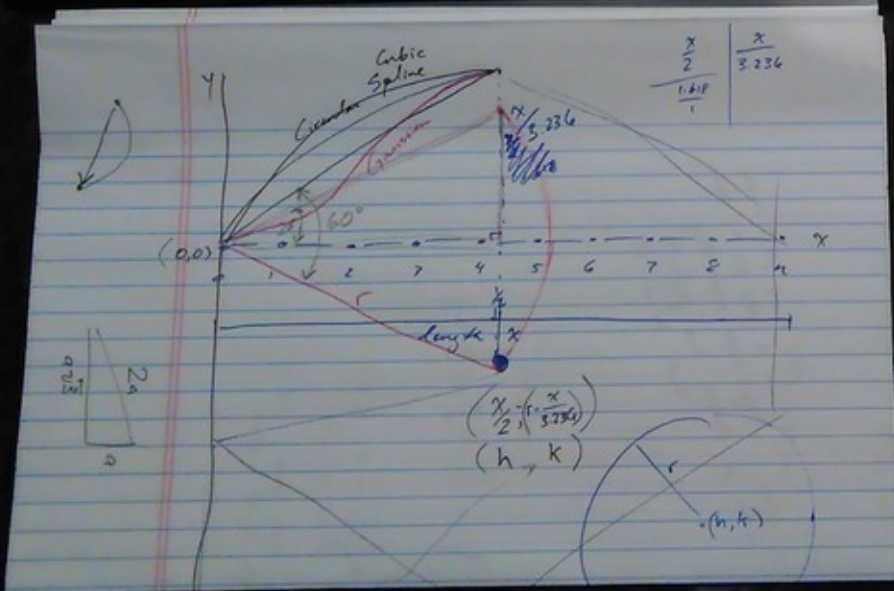 Cubic
Spline
Circular
Gaussian
Y
x
2
x
3.236
1.618
1
x/3.236
60°
(0,0)
x
1
2
3
4
5
6
7
8
r
length
x
2a
a
(x/2, -(r - x/3.236))
(h, k)
r
(h, k)